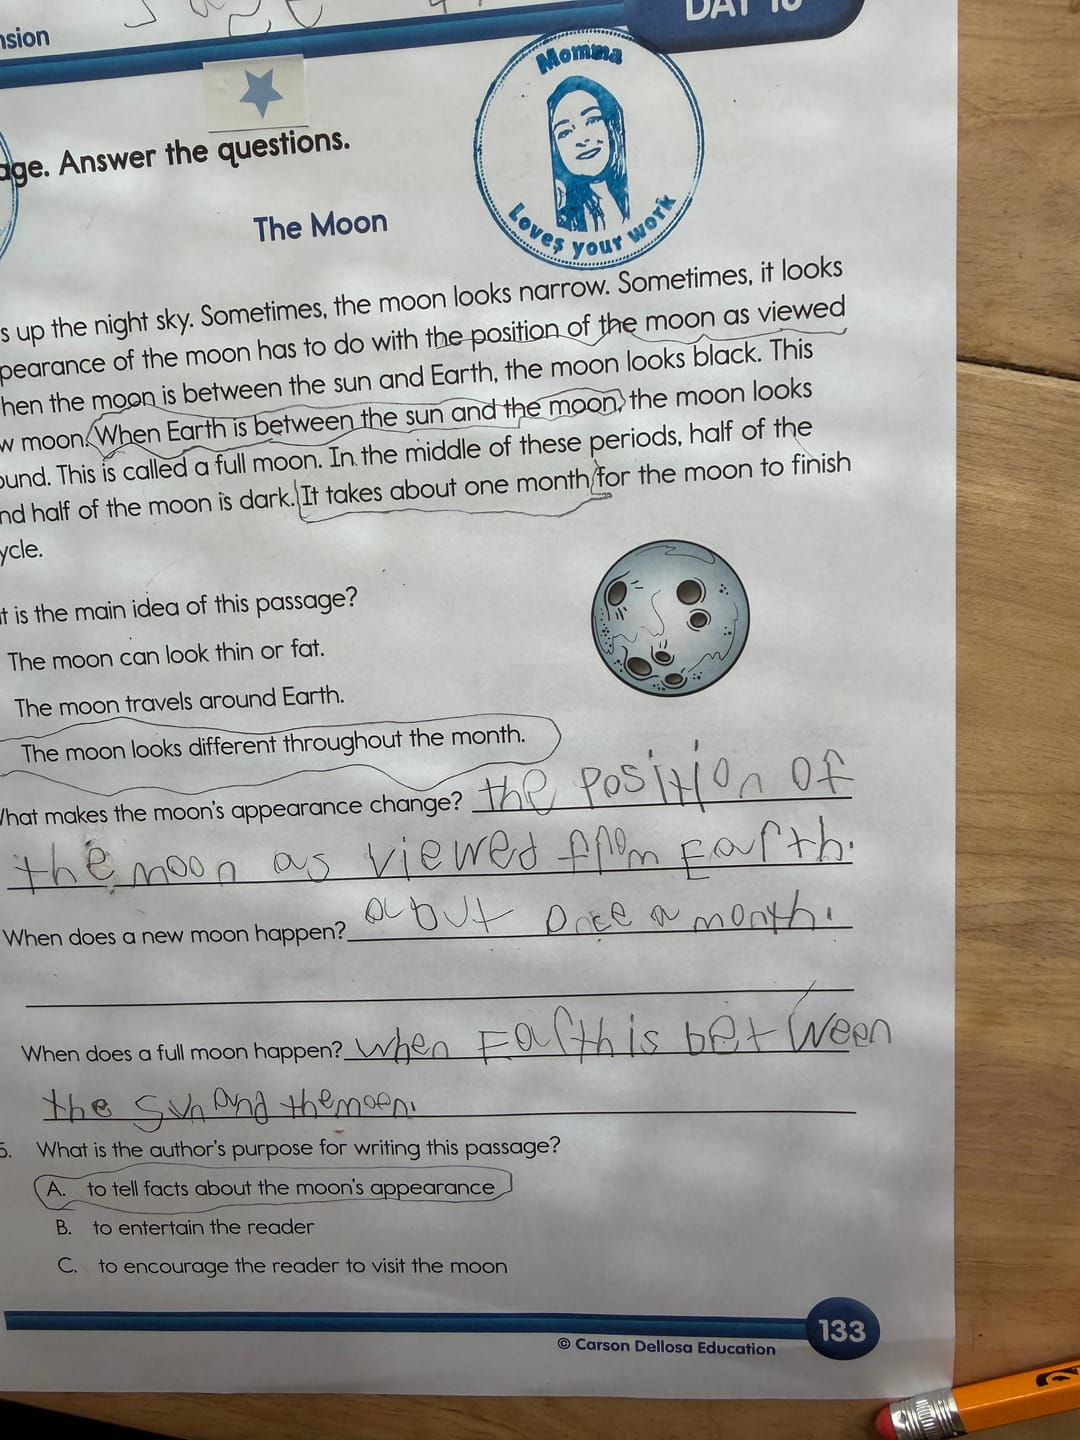 DAY
Momma
Loves your work
Answer the questions.
The Moon
up the night sky. Sometimes, the moon looks narrow. Sometimes, it looks
of the moon has to do with the position of the moon as viewed
the moon is between the sun and Earth, the moon looks black. This
moon. When Earth is between the sun and the moon, the moon looks
This is called a full moon. In the middle of these periods, half of the
half of the moon is dark. It takes about one month for the moon to finish
is the main idea of this passage?
The moon can look thin or fat.
The moon travels around Earth.
The moon looks different throughout the month.
makes the moon's appearance change? the position of
the moon as viewed from Earth.
When does a new moon happen? about once a month.
When does a full moon happen? when Earth is between
the sun and the moon.
5. What is the author's purpose for writing this passage?
A. to tell facts about the moon's appearance
B. to entertain the reader
C. to encourage the reader to visit the moon
133
© Carson Dellosa Education